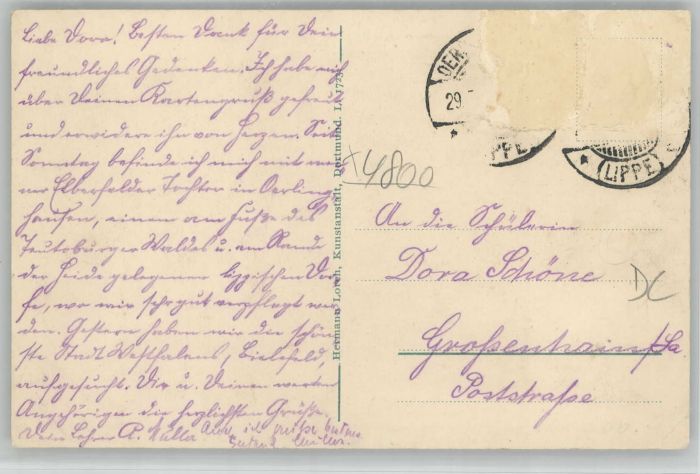 Liebe Dora! Besten Dank für Dein
freundliches Gedenken. Ich habe mich
über Deinen Kartengruß gefreut
und erwidere ihn von Herzen. Seit
Sonntag befinde ich mich mit mei-
ner Elberfelder Tochter in Oerling-
hausen, einem am Fuße des
Teutoburger Waldes u. am Rande
der Heide gelegenen lippischen Dor-
fe, wo wir sehr gut verpflegt wer-
den. Gestern haben wir die schön-
ste Stadt Westfalens, Bielefeld,
aufgesucht. Dir u. Deinen werten
Angehörigen die herzlichsten Grüße.
Dein Lehrer R. Müller Auch ich grüße
Hermann Lorch, Kunstanstalt, Dortmund. L. 1723.
OER
29
(LIPPE)
4800
An die Schülerin
Dora Schöne
DC
Großenhain
Poststraße